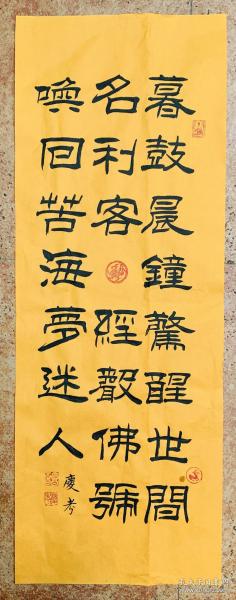 暮鼓晨鐘驚醒世間
名利客經聲佛號
喚回苦海夢迷人
慶考